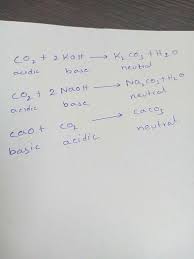 CO2 + 2 KOH → K2CO3 + H2O
acidic base neutral
CO2 + 2 NaOH → Na2CO3 + H2O
acidic base neutral
CaO + CO2 → CaCO3
basic acidic neutral